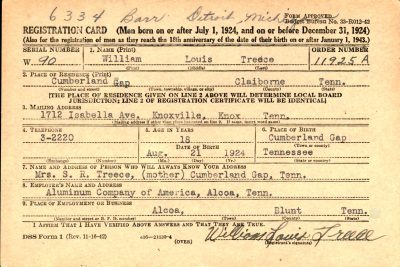 6334 Barr Detroit Mich
Form Approved
Budget Bureau No. 33-R012-42
REGISTRATION CARD (Men born on or after July 1, 1924, and on or before December 31, 1924)
(Also for the registration of men as they reach the 18th anniversary of the date of their birth on or after January 1, 1943.)
SERIAL NUMBER 1. NAME (Print) ORDER NUMBER
W. 90 William Louis Treece 11925 A
(First) (Middle) (Last)
2. PLACE OF RESIDENCE (Print)
Cumberland Gap Claiborne Tenn.
(Number and street) (Town, township, village, or city) (County) (State)
[THE PLACE OF RESIDENCE GIVEN ON LINE 2 ABOVE WILL DETERMINE LOCAL BOARD
JURISDICTION; LINE 2 OF REGISTRATION CERTIFICATE WILL BE IDENTICAL]
3. MAILING ADDRESS
1712 Isabella Ave. Knoxville, Knox Tenn.
[Mailing address if other than place indicated on line 2. If same, insert word same]
4. TELEPHONE 5. AGE IN YEARS 6. PLACE OF BIRTH
3-2220 18 Cumberland Gap
DATE OF BIRTH (Town or county)
Aug. 21 1924 Tennessee
(Exchange) (Number) (Mo.) (Day) (Yr.) (State or country)
7. NAME AND ADDRESS OF PERSON WHO WILL ALWAYS KNOW YOUR ADDRESS
Mrs. S. R. Treece, (mother) Cumberland Gap, Tenn.
8. EMPLOYER'S NAME AND ADDRESS
Aluminum Company of America, Alcoa, Tenn.
9. PLACE OF EMPLOYMENT OR BUSINESS
Alcoa, Blunt Tenn.
(Number and street or R. F. D. number) (Town) (County) (State)
I AFFIRM THAT I HAVE VERIFIED ABOVE ANSWERS AND THAT THEY ARE TRUE.
DSS Form 1 (Rev. 11-16-42) (OVER) William Louis Treece
(Registrant's signature)